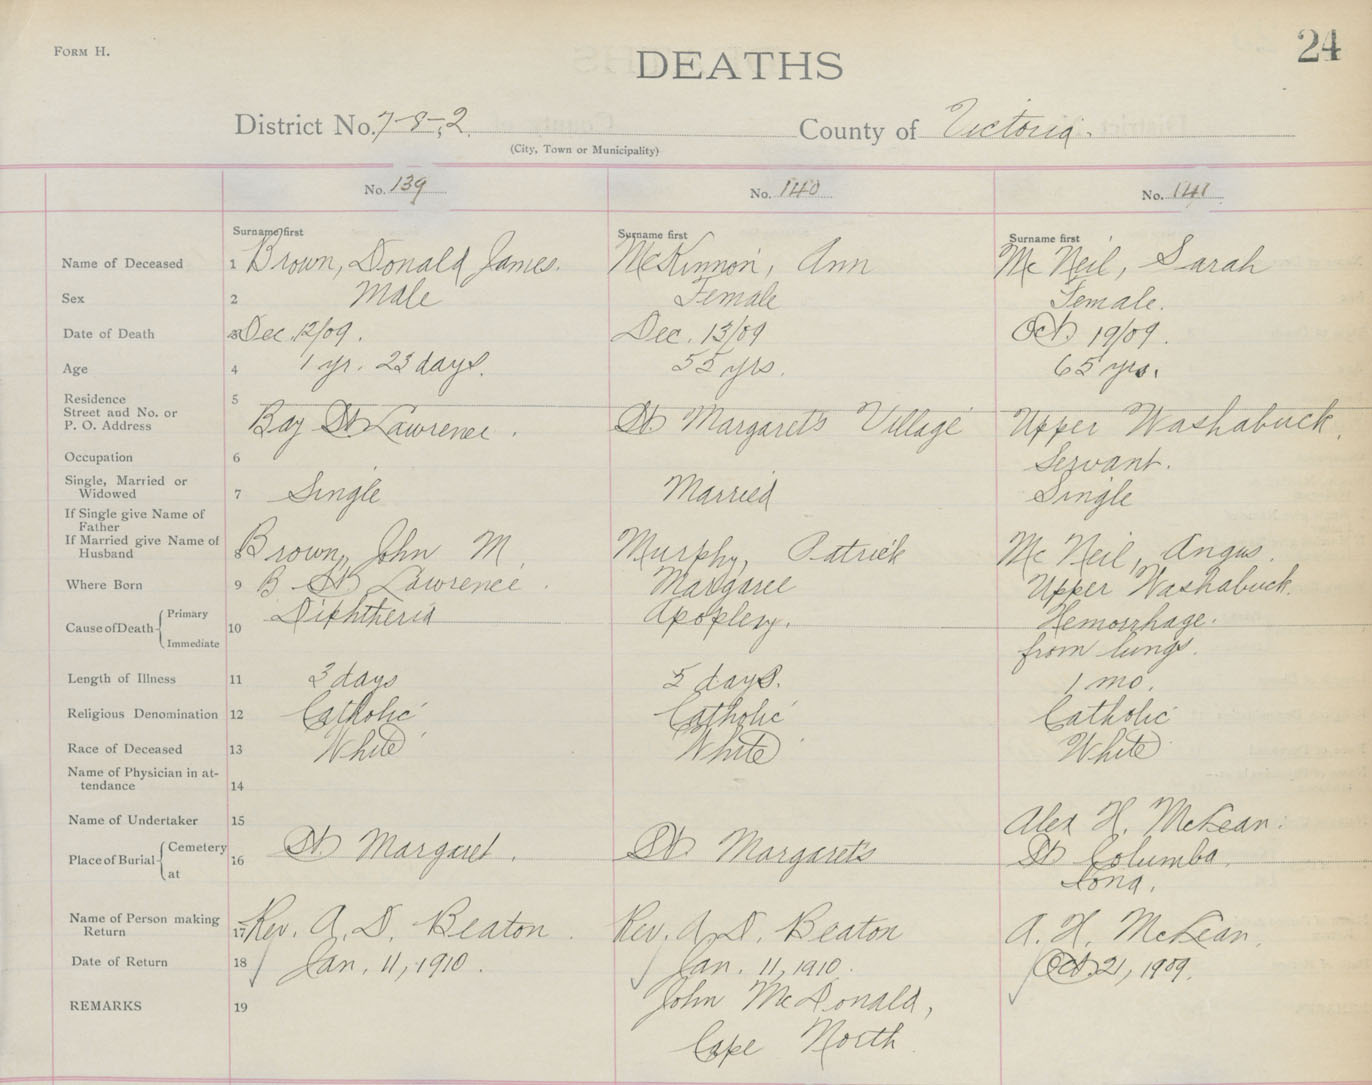 FORM H.
24
DEATHS
District No. 7-8-2 County of Victoria.
(City, Town or Municipality)
No. 139 No. 140 No. 141
Surname first Surname first Surname first
Name of Deceased 1 Brown, Donald James. McKinnon, Ann McNeil, Sarah
Sex 2 Male Female Female.
Date of Death 3 Dec. 12/09. Dec. 13/09 Oct. 19/09.
Age 4 1 yr. 23 days. 55 yrs. 65 yrs.
Residence 5
Street and No. or
P. O. Address Bay St Lawrence. St Margaret's Village Upper Washabuck.
Occupation 6 Servant.
Single, Married or
Widowed 7 Single Married Single
If Single give Name of
Father
If Married give Name of
Husband 8 Brown, John M. Murphy, Patrick McNeil, Angus.
Where Born 9 B St Lawrence. Margaree Upper Washabuck.
Cause of Death Primary Diphtheria Apoplexy. Hemorrhage.
10
Immediate from lungs.
Length of Illness 11 3 days 5 days. 1 mo.
Religious Denomination 12 Catholic Catholic Catholic
Race of Deceased 13 White White White
Name of Physician in at-
tendance 14
Name of Undertaker 15 Alex H. McLean.
Place of Burial Cemetery 16 St. Margaret. St. Margaret's St Columba.
at Iona.
Name of Person making
Return 17 Rev. A. D. Beaton. Rev. A. D. Beaton A. H. McLean.
Date of Return 18 Jan. 11, 1910. Jan. 11, 1910. Oct. 21, 1909.
REMARKS 19 John McDonald,
Cape North